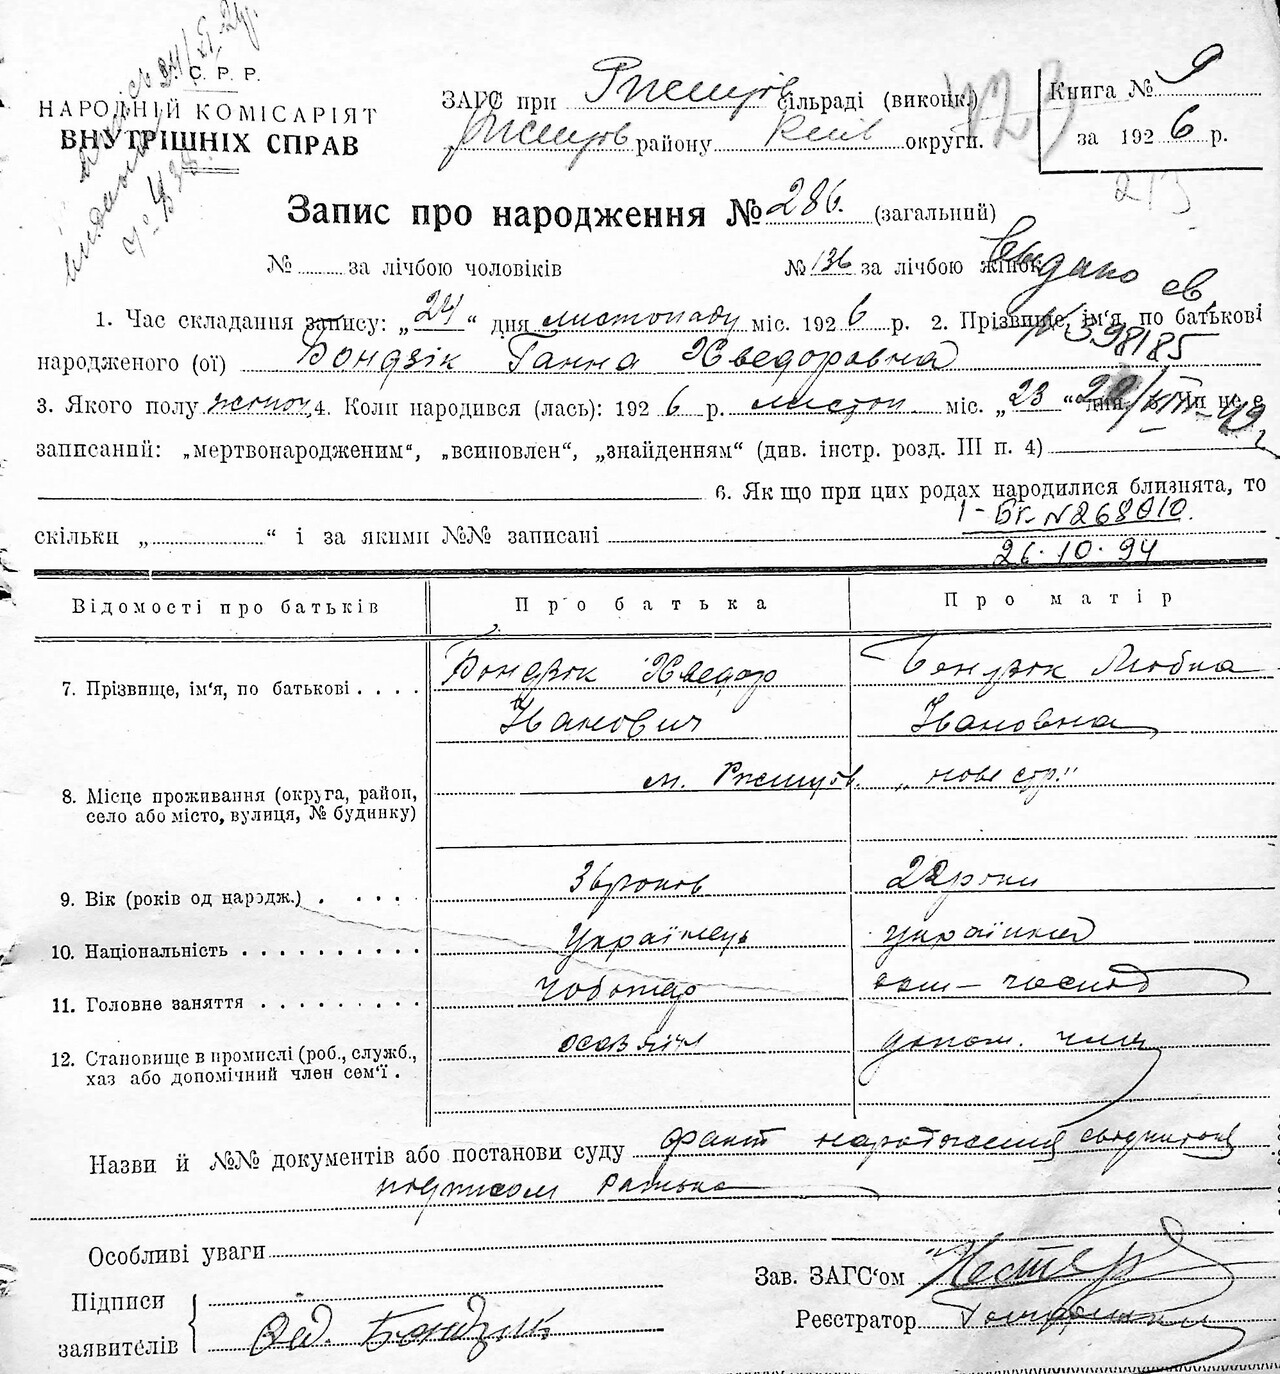 С. Р. Р.
НАРОДНІЙ КОМІСАРІЯТ
ВНУТРІШНІХ СПРАВ
ЗАГС при Ржищів сільраді (виконк.)
Ржищів району Київ округи.
Книга № 9
за 1926 р.
423
213
Запис про народження № 286. (загальний)
№ за лічбою чоловіків
№ 136 за лічбою жінок
Видано св.
1. Час складання запису: „24“ дня листопаду міс. 1926 р. 2. Прізвище, ім'я, по батькові
№ 398185
народженого (ої) Бондзік Ганна Хведоровна
3. Якого полу жіноч 4. Коли народився (лась): 1926 р. листоп. міс. „23“ дня. 5. Чи не є
записаний: „мертвонародженим“, „всиновлен“, „знайденням“ (див. інстр. розд. III п. 4)
6. Як що при цих родах народилися близнята, то
І-БК №268010.
скільки „ “ і за якими №№ записані
26.10.94
Відомості про батьків Про батька Про матір
7. Прізвище, ім'я, по батькові . . . . Бондзік Хведор Іванович Бондзік Любка Івановна
8. Місце проживання (округа, район, село або місто, вулиця, № будинку) м. Ржищів. „нове стр."
9. Вік (років од народж.) . . . . . 36 років 22 роки
10. Національність . . . . . . . . . . Українець українка
11. Головне заняття . . . . . . . . . Чоботар дом-господ
12. Становище в промислі (роб., служб., хаз або допомічний член сем'ї . допом. член
Назви й №№ документів або постанови суду факт народження
подписом батька
Особливі уваги
Зав. ЗАГС'ом Нестер
Підписи
заявителів
Бондзик
Реєстратор